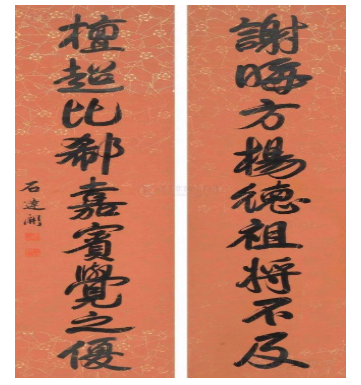 謝晦方楊德祖將不及
檀超比郗嘉賓覺之優
石達開